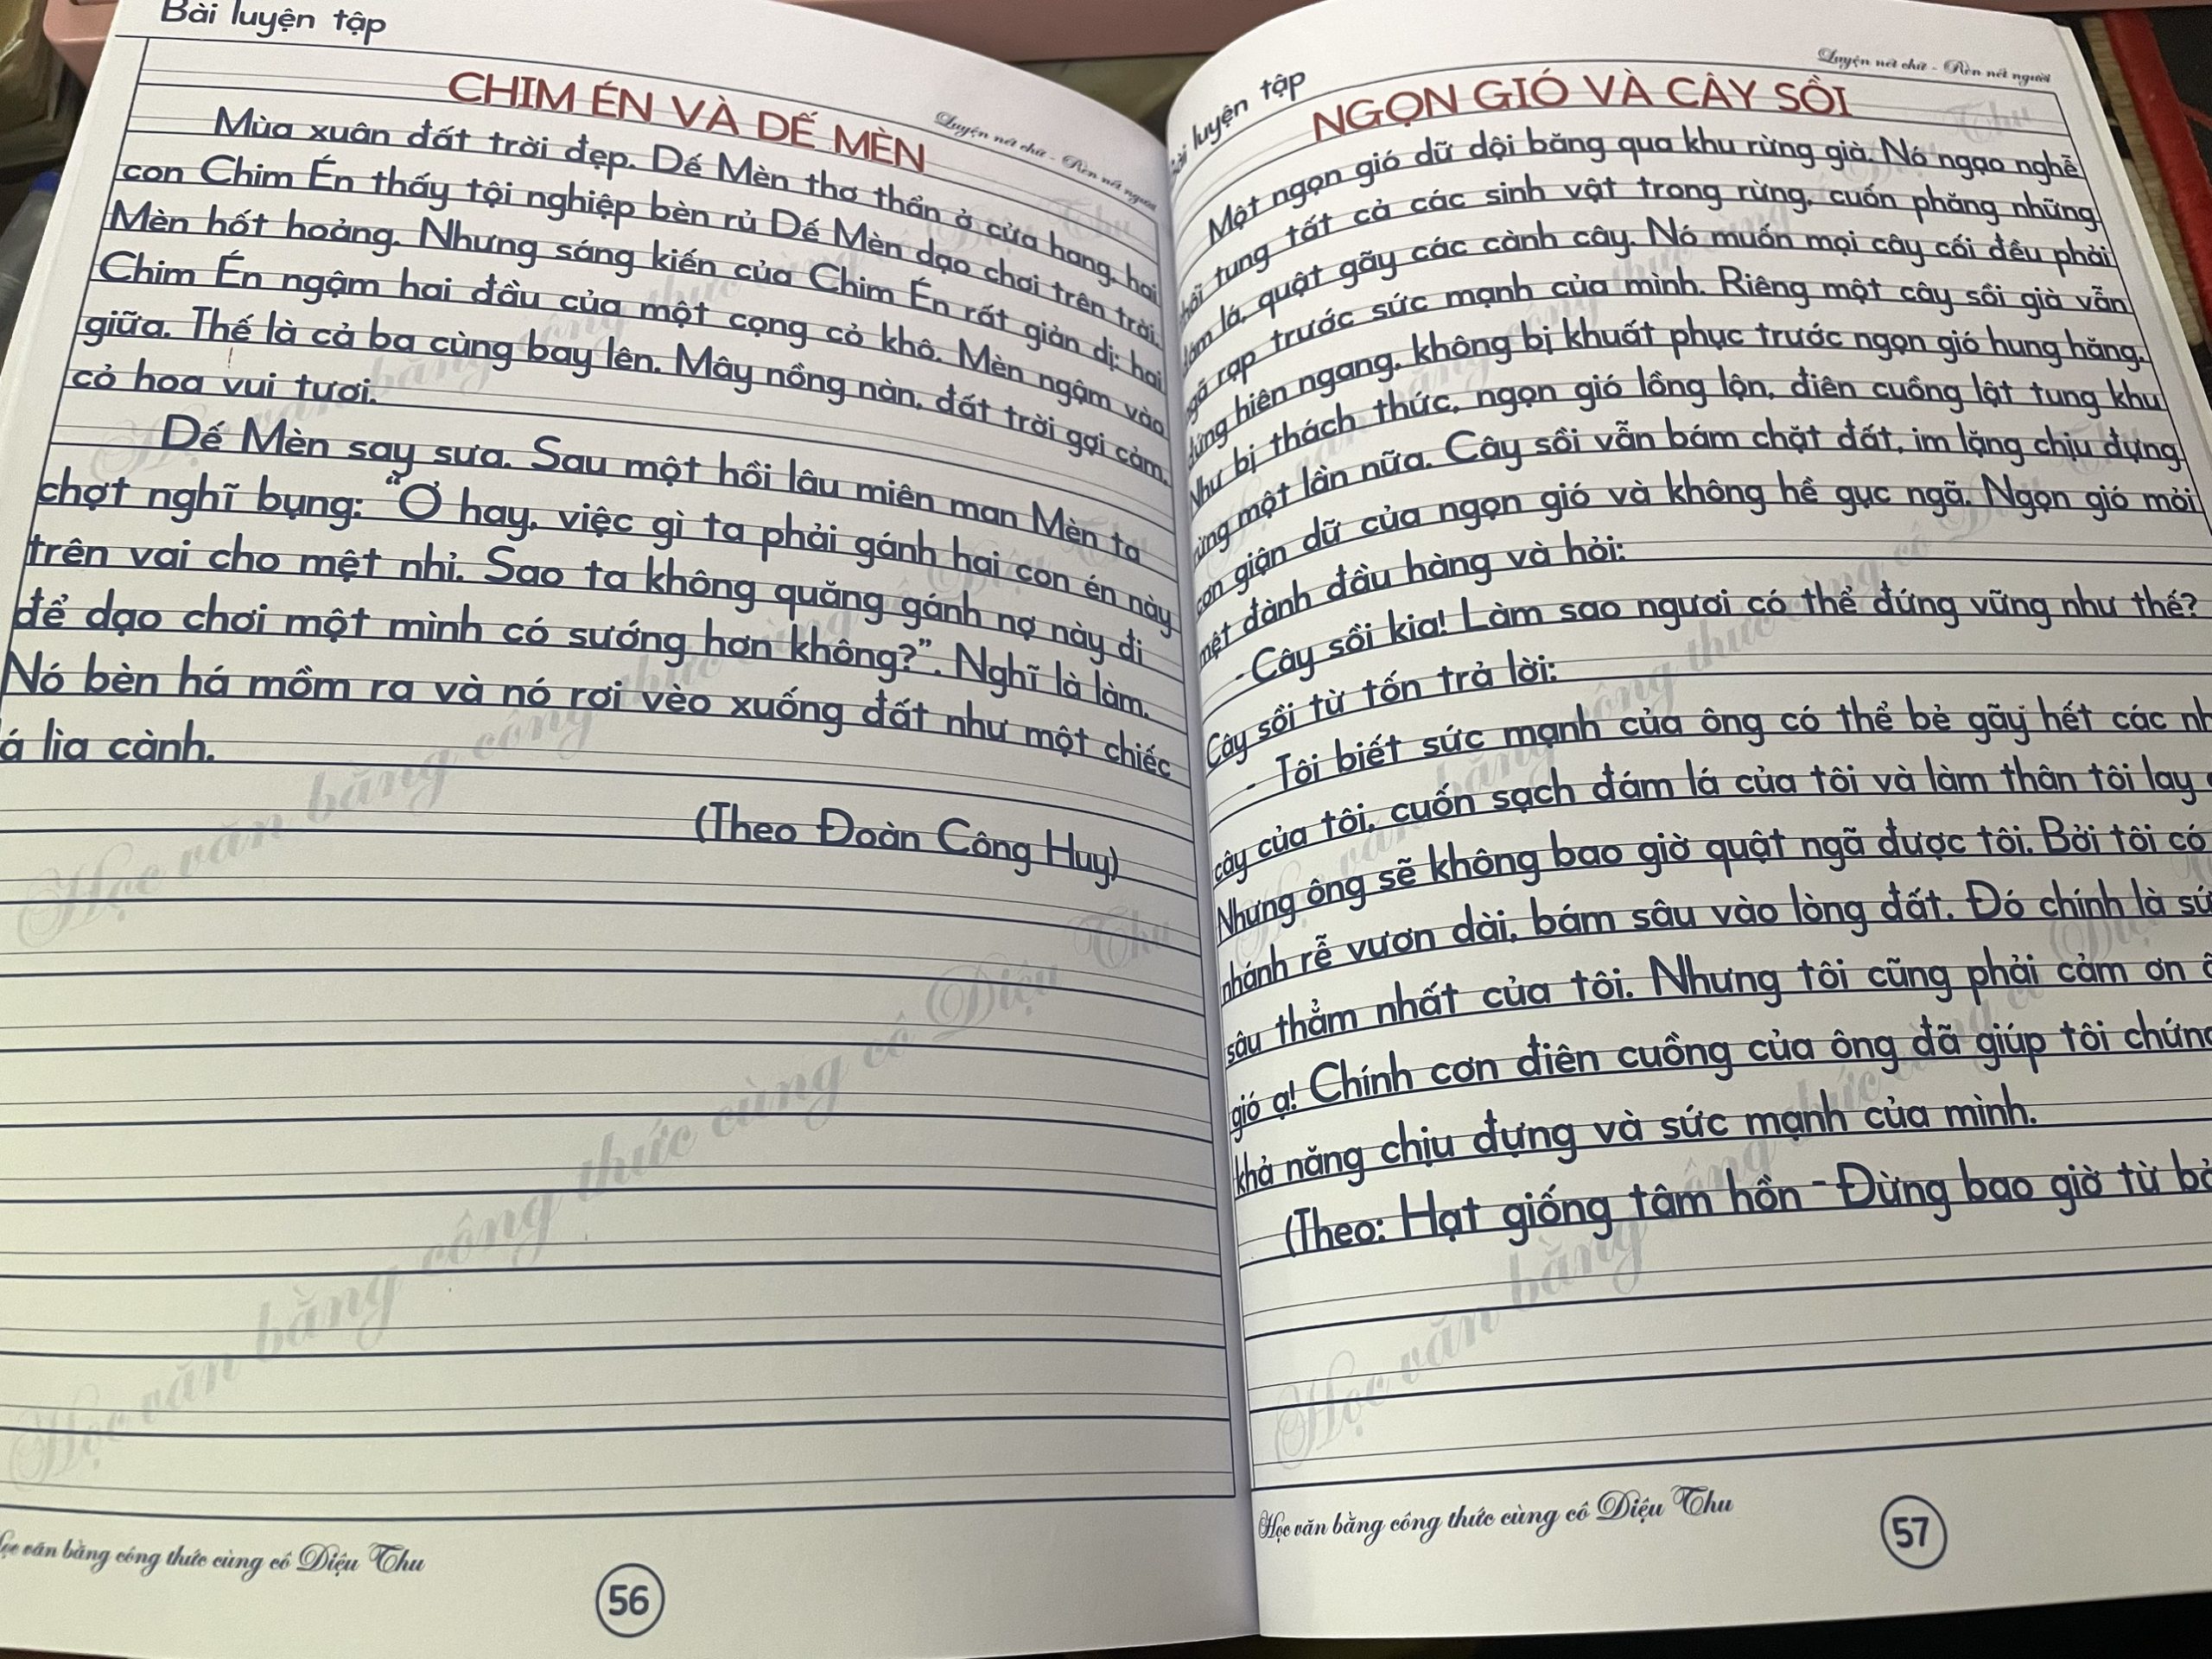 Bài luyện tập
Luyện nét chữ - Rèn nét người
CHIM ÉN VÀ DẾ MÈN
Mùa xuân đất trời đẹp. Dế Mèn thơ thẩn ở cửa hang, hai
con Chim Én thấy tội nghiệp bèn rủ Dế Mèn dạo chơi trên trời.
Mèn hốt hoảng. Nhưng sáng kiến của Chim Én rất giản dị: hai
Chim Én ngậm hai đầu của một cọng cỏ khô. Mèn ngậm vào
giữa. Thế là cả ba cùng bay lên. Mây nồng nàn, đất trời gợi cảm,
cỏ hoa vui tươi.
Dế Mèn say sưa. Sau một hồi lâu miên man Mèn ta
chợt nghĩ bụng: “Ơ hay, việc gì ta phải gánh hai con én này
trên vai cho mệt nhỉ. Sao ta không quăng gánh nợ này đi
để dạo chơi một mình có sướng hơn không?”. Nghĩ là làm.
Nó bèn há mồm ra và nó rơi vèo xuống đất như một chiếc
lìa cành.
(Theo Đoàn Công Huy)
Học văn bằng công thức cùng cô Diệu Thu
56
luyện tập
Luyện nét chữ - Rèn nét người
NGỌN GIÓ VÀ CÂY SỒI
Một ngọn gió dữ dội băng qua khu rừng già. Nó ngạo nghễ
tung tất cả các sinh vật trong rừng, cuốn phăng những
đám lá, quật gãy các cành cây. Nó muốn mọi cây cối đều phải
ngã rạp trước sức mạnh của mình. Riêng một cây sồi già vẫn
đứng hiên ngang, không bị khuất phục trước ngọn gió hung hăng.
Như bị thách thức, ngọn gió lồng lộn, điên cuồng lật tung khu
rừng một lần nữa. Cây sồi vẫn bám chặt đất, im lặng chịu đựng
cơn giận dữ của ngọn gió và không hề gục ngã. Ngọn gió mỏi
mệt đành đầu hàng và hỏi:
- Cây sồi kia! Làm sao ngươi có thể đứng vững như thế?
Cây sồi từ tốn trả lời:
- Tôi biết sức mạnh của ông có thể bẻ gãy hết các
cây của tôi, cuốn sạch đám lá của tôi và làm thân tôi lay
Nhưng ông sẽ không bao giờ quật ngã được tôi. Bởi tôi có
nhánh rễ vươn dài, bám sâu vào lòng đất. Đó chính là
sâu thẳm nhất của tôi. Nhưng tôi cũng phải cảm ơn
gió ạ! Chính cơn điên cuồng của ông đã giúp tôi
khả năng chịu đựng và sức mạnh của mình.
(Theo: Hạt giống tâm hồn - Đừng bao giờ từ
Học văn bằng công thức cùng cô Diệu Thu
57